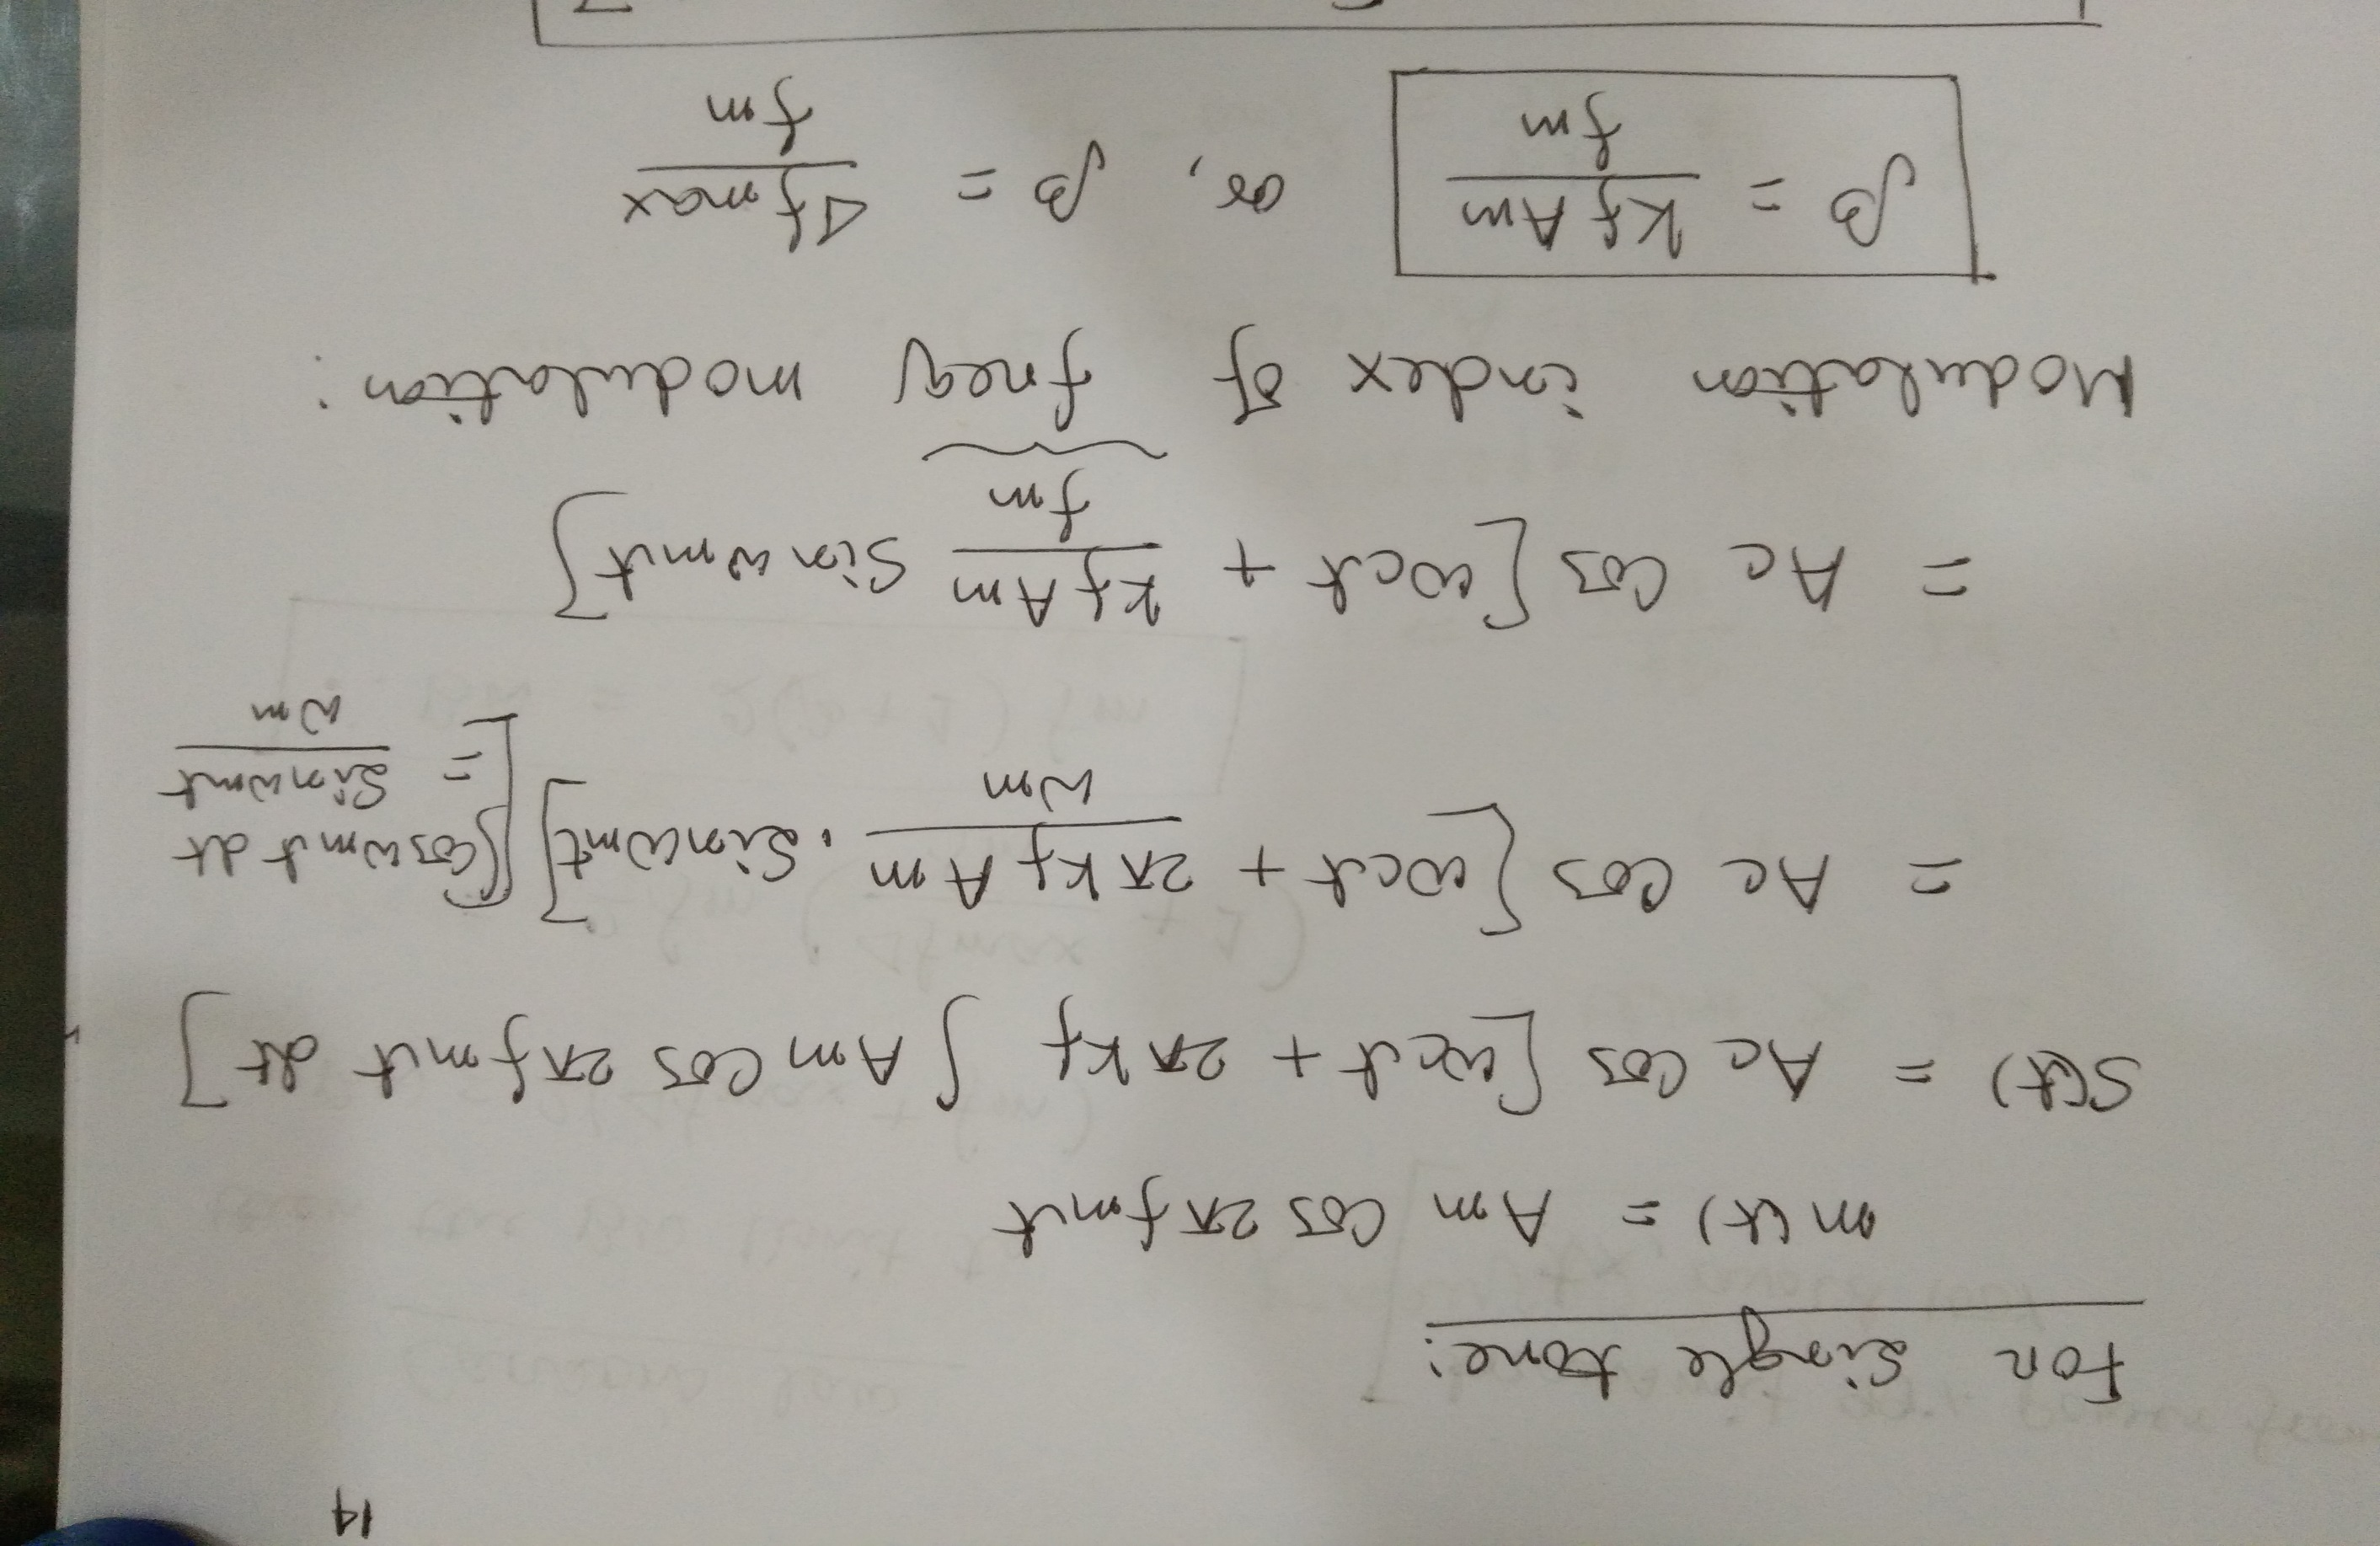 14
For single tone:
m(t) = Am Cos 2π fmt
S(t) = Ac Cos [ωct + 2π Kf ∫ Am Cos 2π fmt dt]
= Ac Cos [ωct + 2π Kf Am / ωm . Sinωmt] [∫Cosωmt dt = Sinωmt / ωm]
= Ac Cos [ωct + Kf Am / fm Sin ωmt]
Modulation index of freq modulation:
β = Kf Am / fm or, β = Δfmax / fm